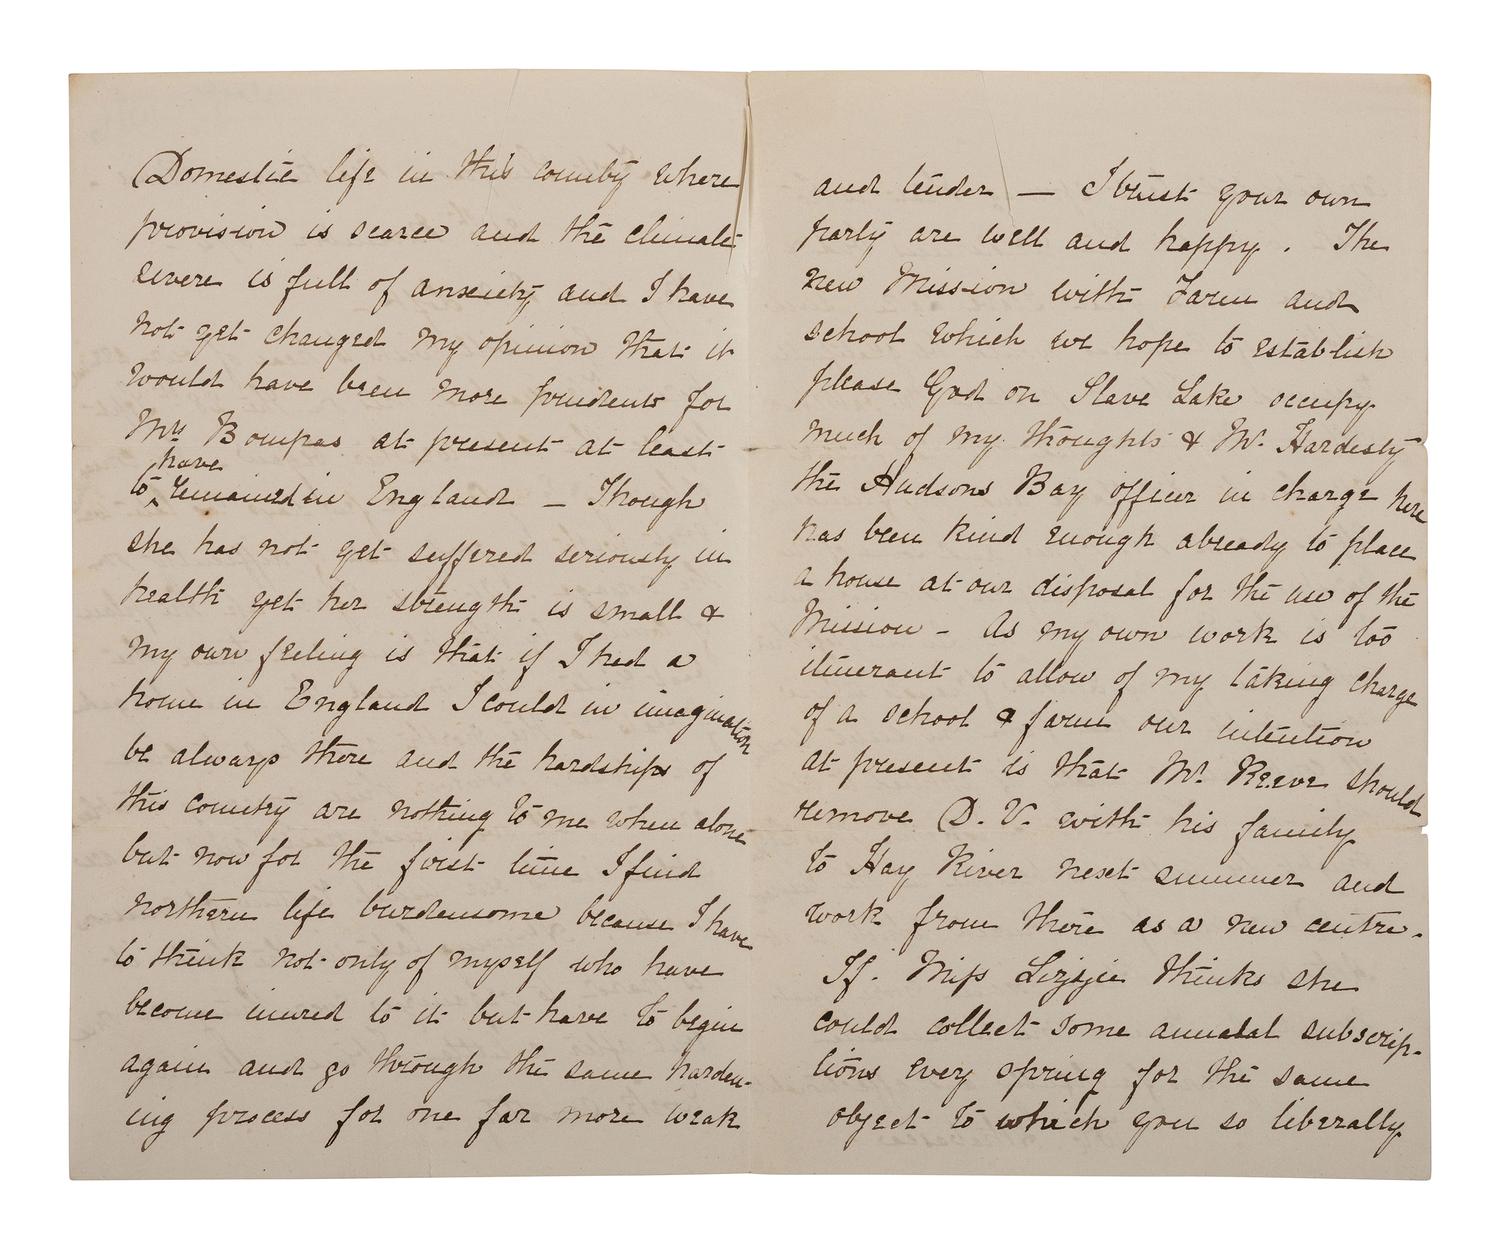 Domestic life in this country where
provision is scarce and the climate
severe is full of anxiety and I have
not yet changed my opinion that it
would have been more prudent for
Mrs Bompas at present at least
have
to ‸ remained in England — Though
she has not yet suffered seriously in
health yet her strength is small &
my own feeling is that if I had a
home in England I could in imagination
be always there and the hardships of
this country are nothing to me when alone
but now for the first time I find
northern life burdensome because I have
to think not only of myself who have
become inured to it but have to begin
again and go through the same harden-
ing process for one far more weak
and tender — I trust your own
party are well and happy. The
new Mission with Farm and
school which we hope to establish
please God on Slave Lake occupy
much of my thoughts & Mr. Hardesty
the Hudsons Bay officer in charge here
has been kind enough already to place
a house at our disposal for the use of the
Mission - As my own work is too
itinerant to allow of my taking charge
of a school & farm our intention
at present is that Mr. Reeve should
remove D. V. with his family
to Hay River next summer and
work from there as a new centre.
If. Miss Lizzie thinks she
could collect some annual subscrip-
tions every spring for the same
object to which you so liberally